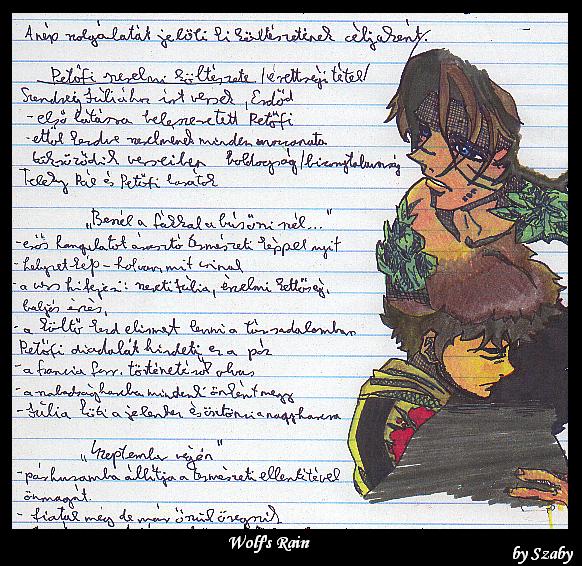 A nép szolgálatát jelöli ki költészetének céljaként.
Petőfi szerelmi költészete /érettségi tétel/
Szendrey Júliához írt versek, Erdőd
- első látásra beleszeretett Petőfi
- ettől kezdve szerelmének minden mozzanata
tükröződik verseiben boldogság/bizonytalanság
Teleky Pál és Petőfi barátok
"Beszél a fákkal a bús őszi szél..."
- erős hangulatot árasztó természeti képpel nyit
- helyzetkép - holvan, mit csinál
- a vers kifejezi: neszti Júlia, érzelmi kettőség,
baljós érzés,
- a költő kezd elismert lenni a társadalomban
Petőfi diadalát hirdeti ez a pár
- a francia forr. történetéről olvas
- a szabadságharcba mindenki önként megy
- Júlia köti a jelenhez és ösztönzi a nagy harcra
"Szeptember végén"
- párhuzamba állítja a természeti ellentétével
önmagát
- fiatal még de már őszül öregszik
Wolf's Rain
by Szaby